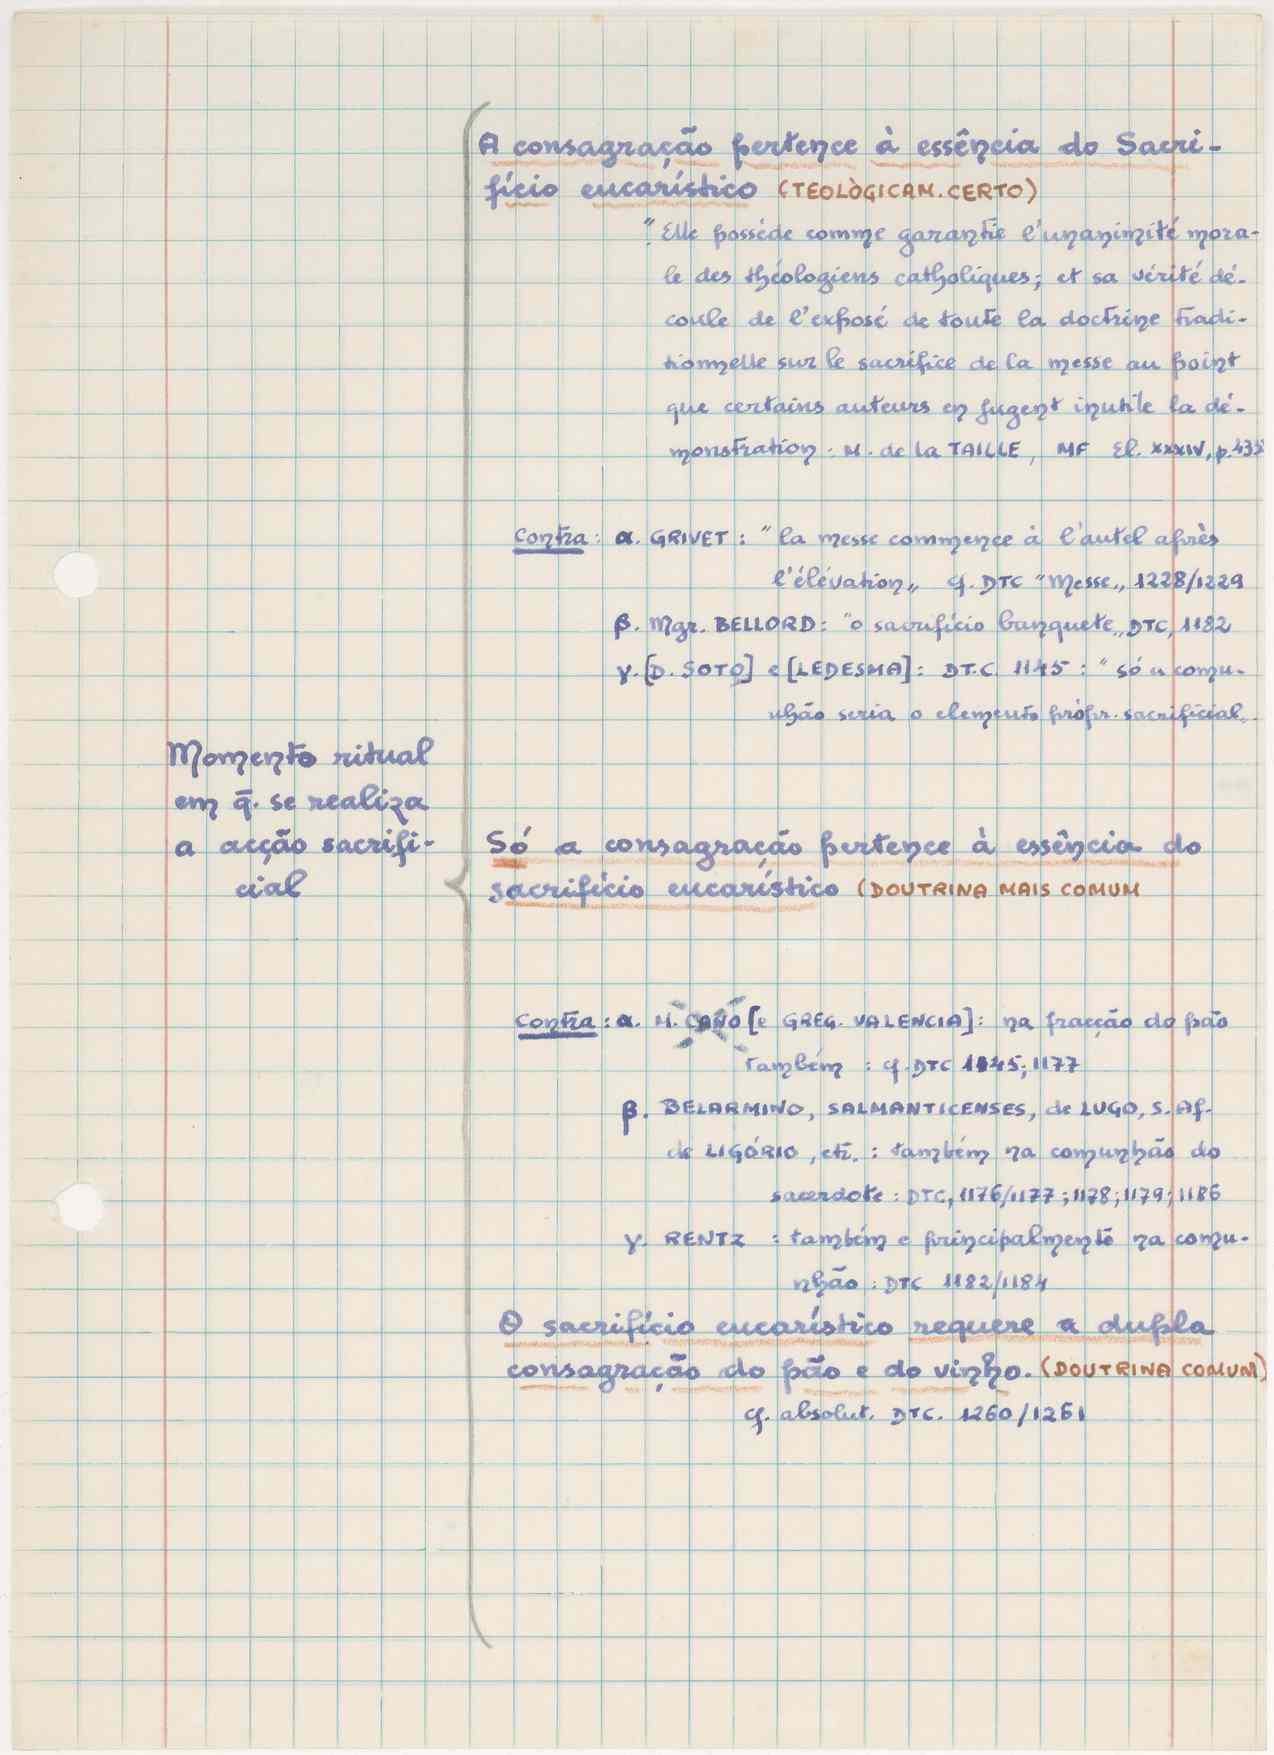 A consagração pertence à essência do Sacri-
fício eucarístico (TEOLÒGICAM. CERTO)
" Elle possède comme garantie l'unanimité mora-
le des théologiens catholiques; et sa vérité dé-
coule de l'exposé de toute la doctrine tradi-
tionnelle sur le sacrifice de la messe au point
que certains auteurs en jugent inutile la dé-
monstration : M. de la TAILLE, MF El. XXXIV, p.435
Contra : α. GRIVET : "la messe commence à l'autel après
l'élévation„ cf. DTC "Messe„ 1228/1229
β. Mgr. BELLORD : "o sacrifício banquete„ DTC, 1182
γ. [D. SOTO] e [LEDESMA] : DT.C. 1145 : "só a comu-
nhão seria o elemento própr. sacrificial„
Momento ritual
em q̄. se realiza
a acção sacrifi-
cial
Só a consagração pertence à essência do
sacrifício eucarístico (DOUTRINA MAIS COMUM
Contra : α. M. CANO [e GREG. VALENCIA] : na fracção do pão
também : cf. DTC 1145; 1177
β. BELARMINO, SALMANTICENSES, de LUGO, S. Af.
de LIGÓRIO, etc. : também na comunhão do
sacerdote : DTC, 1176/1177 ; 1178; 1179; 1186
γ. RENTZ : também e principalmente na comu-
nhão : DTC 1182/1184
O sacrifício eucarístico requere a dupla
consagração do pão e do vinho. (DOUTRINA COMUM)
cf. absolut. DTC. 1260/1261